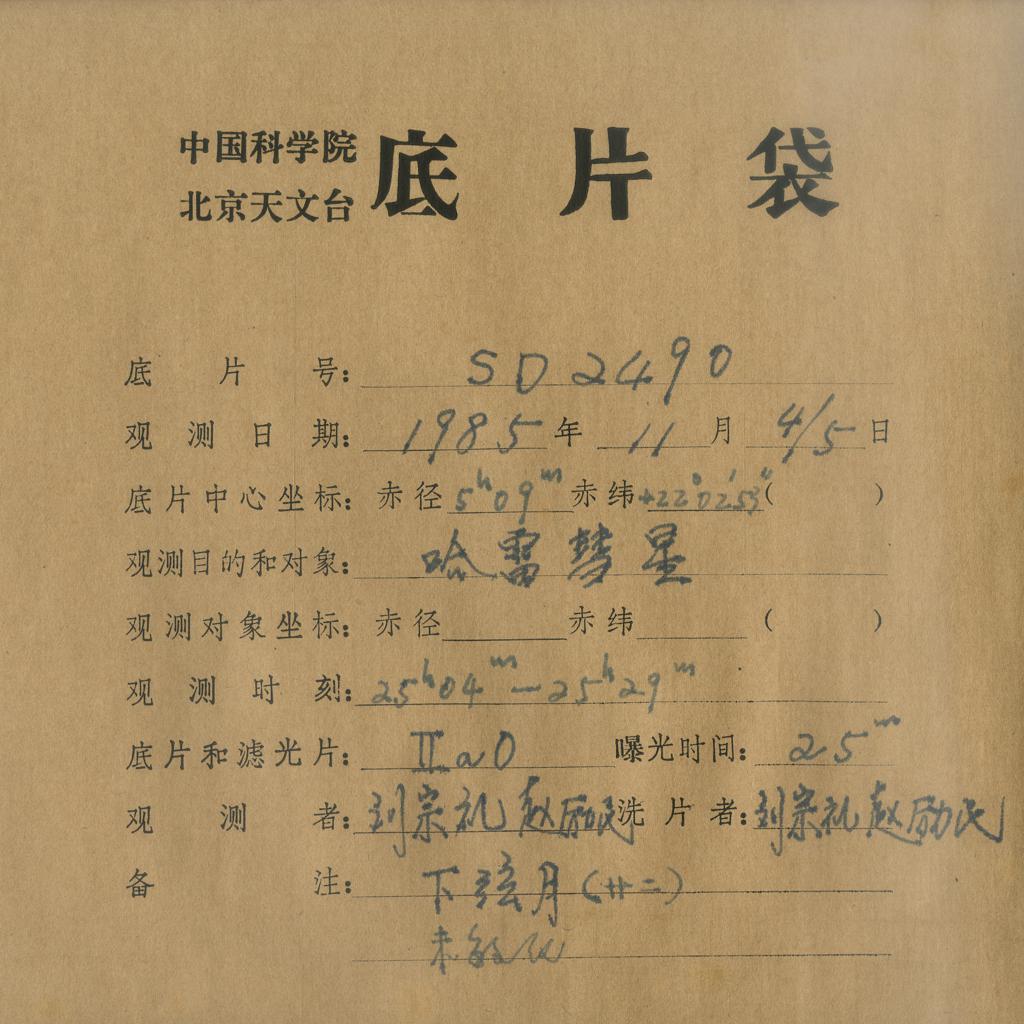 中国科学院
北京天文台
底片袋
底片号: SD2490
观测日期: 1985年 11月 4/5日
底片中心坐标: 赤径 5h09m 赤纬 +22°02′53″( )
观测目的和对象: 哈雷彗星
观测对象坐标: 赤径 赤纬 ( )
观测时刻: 25h04m—25h29m
底片和滤光片: IIaO 曝光时间: 25m
观测者: 刘宗礼 赵励民 洗片者: 刘宗礼 赵励民
备注: 下弦月(廿二)
未敏化